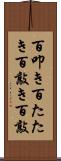 百叩き百たた
き百敲き百敲